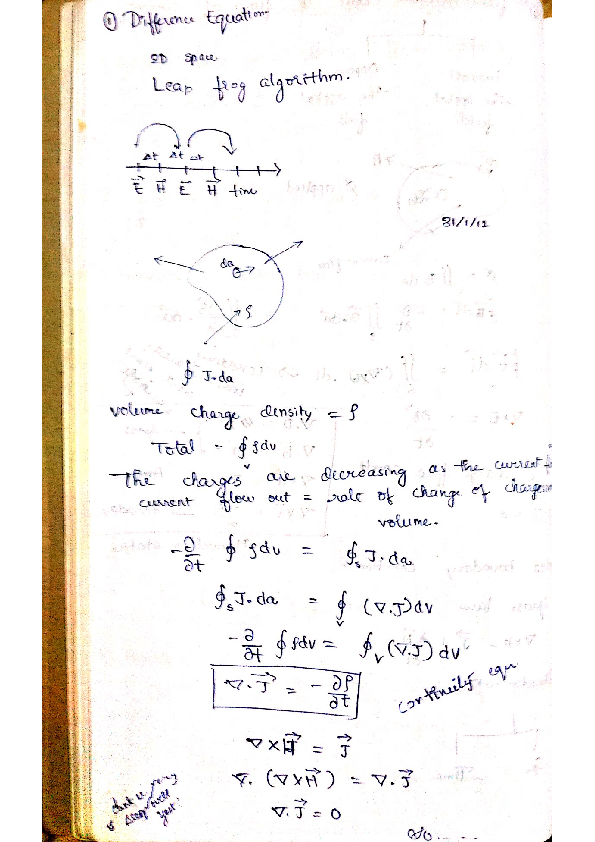 ① Difference Equation
3D space
Leap frog algorithm.
Δt Δt Δt
E⃗ H⃗ E⃗ H⃗ time
31/1/12
da
ρ
∮ J.da
volume charge density = ρ
Total = ∮ᵥ ρdv
The charges are decreasing as the current
current flow out = rate of change of charge
volume.
-∂/∂t ∮ ρdv = ∮ₛ J.da
∮ₛ J.da = ∮ᵥ (∇.J)dv
-∂/∂t ∮ ρdv = ∮ᵥ (∇.J) dv
∇.J⃗ = -∂ρ/∂t
continuity equ
∇×H⃗ = J⃗
∇. (∇×H⃗) = ∇.J⃗
∇.J⃗ = 0